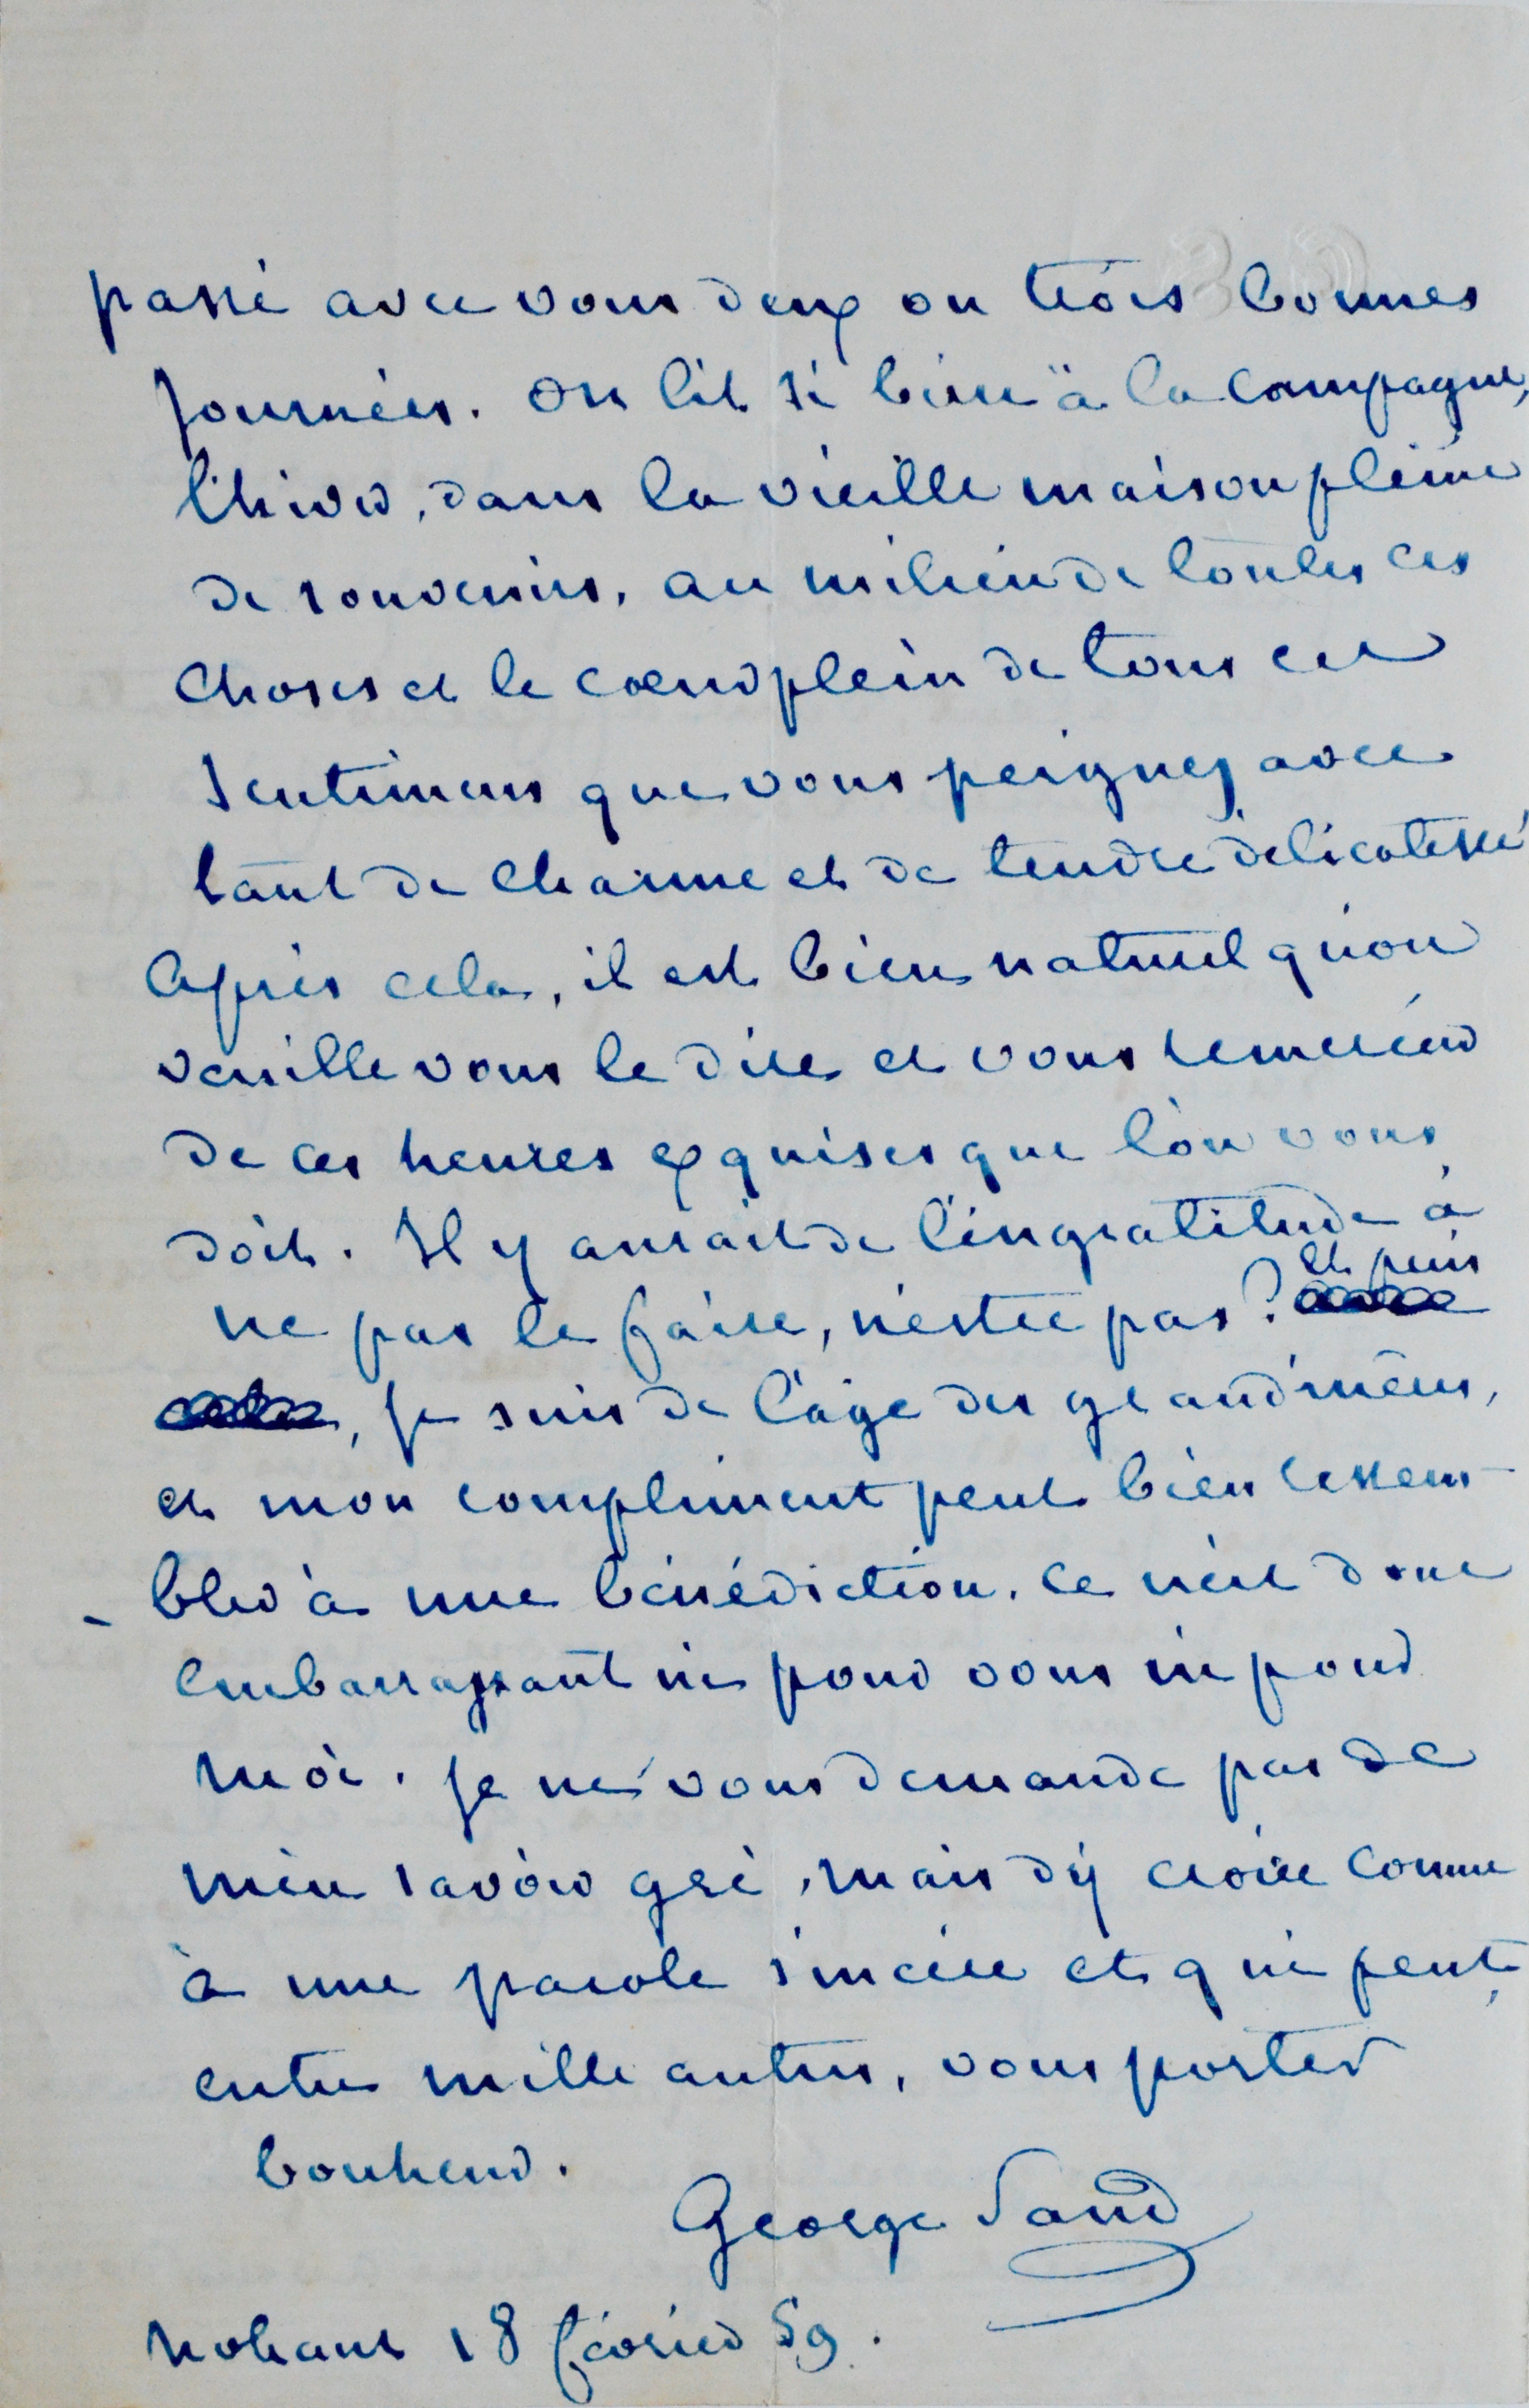 passé avec vous deux ou trois bonnes
journées. On lit si bien à la campagne,
l'hiver, dans la vieille maison pleine
de souvenirs, au milieu de toutes ces
choses et le cœur plein de tous ces
sentimens que vous peignez avec
tant de charme et de tendre délicatesse
après cela, il est bien naturel qu'on
veuille vous le dire et vous remercier
de ces heures exquises que l'on vous
doit. Il y aurait de l'ingratitude à
ne pas le faire, n'estce pas ? et puis
, je suis de l'age des grand'mères,
et mon compliment peut bien ressem-
-bler à une bénédiction. ce n'est donc
embarrassant ni pour vous ni pour
moi. je ne vous demande pas de
m'en savoir gré, mais d'y croire comme
à une parole sincère et qui peut,
entre mille autres, vous porter
bonheur.
George Sand
Nohant 18 février 59.